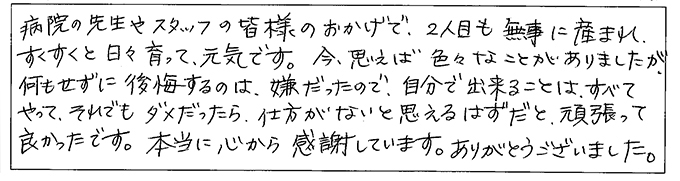 病院の先生やスタッフの皆様のおかげで、2人目も無事に産まれ、
すくすくと日々育って、元気です。今、思えば色々なことがありましたが、
何もせずに後悔するのは、嫌だったので、自分で出来ることは、すべて
やって、それでもダメだったら、仕方がないと思えるはずだと、頑張って
良かったです。本当に心から感謝しています。ありがとうございました。